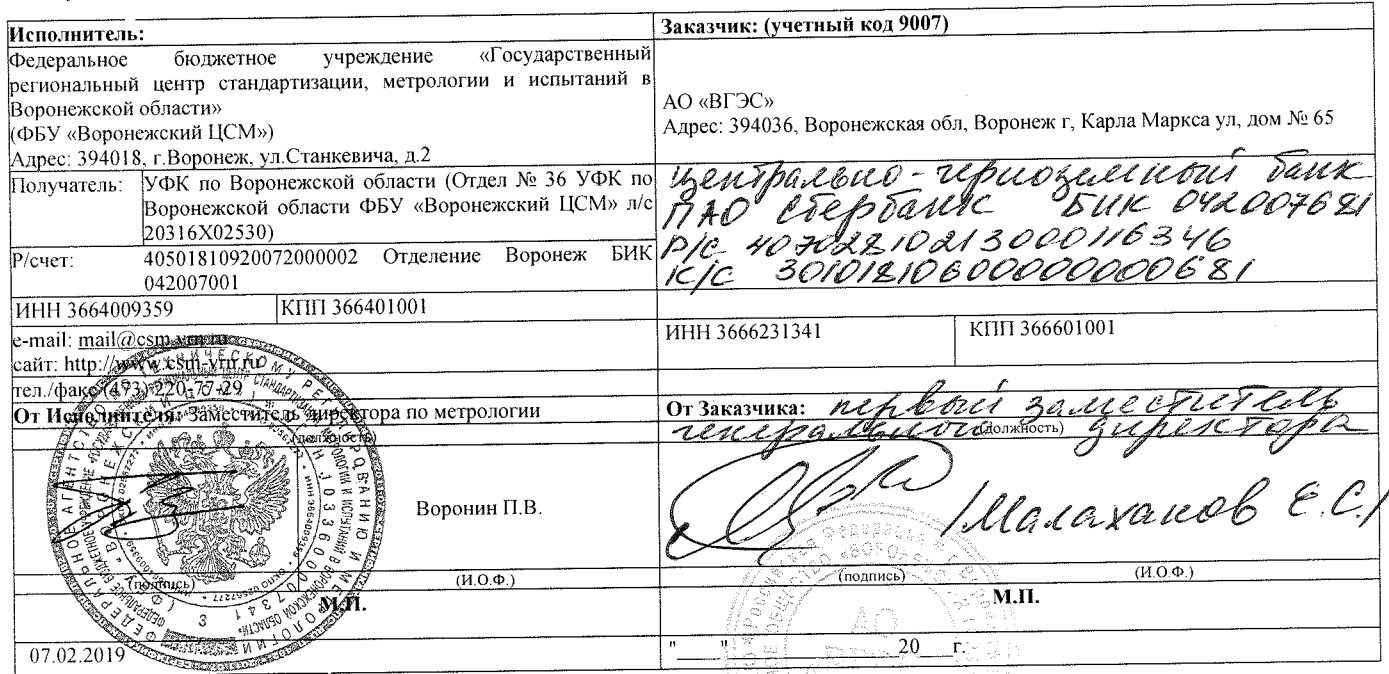 Исполнитель:
Федеральное бюджетное учреждение «Государственный
региональный центр стандартизации, метрологии и испытаний в
Воронежской области»
(ФБУ «Воронежский ЦСМ»)
Адрес: 394018, г.Воронеж, ул.Станкевича, д.2
Получатель: УФК по Воронежской области (Отдел № 36 УФК по
Воронежской области ФБУ «Воронежский ЦСМ» л/с
20316Х02530)
Р/счет: 40501810920072000002 Отделение Воронеж БИК
042007001
ИНН 3664009359 КПП 366401001
e-mail: mail@csm.vrn.ru
сайт: http://www.csm-vrn.ru
тел./факс (473) 220-77-29
От Исполнителя: Заместитель директора по метрологии
(должность)
Воронин П.В.
(подпись) (И.О.Ф.)
М.П.
07.02.2019
Заказчик: (учетный код 9007)
АО «ВГЭС»
Адрес: 394036, Воронежская обл, Воронеж г, Карла Маркса ул, дом № 65
Центрально-Черноземный банк
ПАО Сбербанк БИК 042007681
Р/С 40702810213000116346
К/С 30101810600000000681
ИНН 3666231341 КПП 366601001
От Заказчика: первый заместитель
генерального директора
(должность)
/Малаханов Е.С./
(подпись) (И.О.Ф.)
М.П.
"____" 20___г.